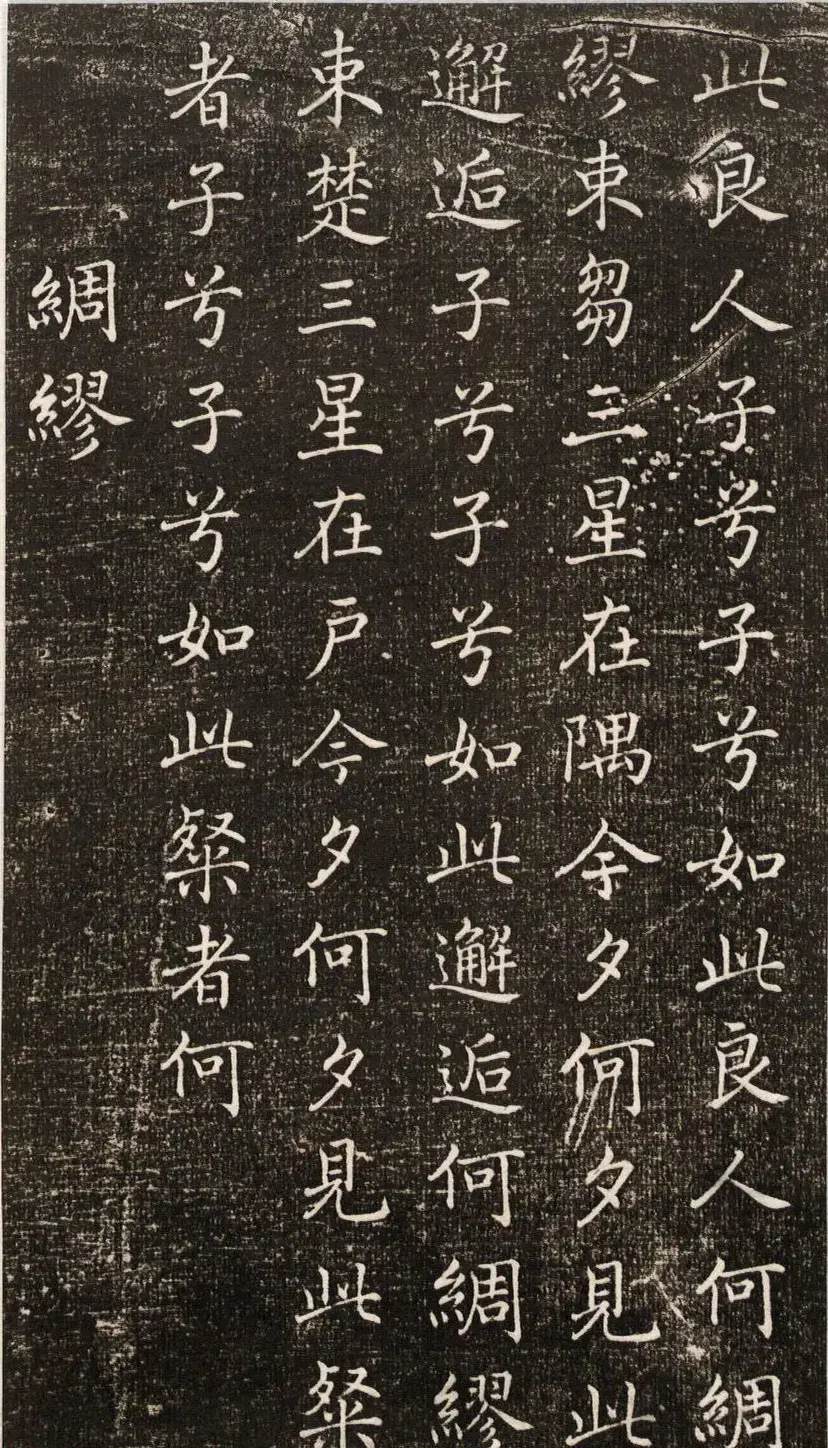 此良人子兮子兮如此良人何綢
繆束芻三星在隅余夕何夕見此
邂逅子兮子兮如此邂逅何綢繆
束楚三星在戶今夕何夕見此粲
者子兮子兮如此粲者何
綢繆